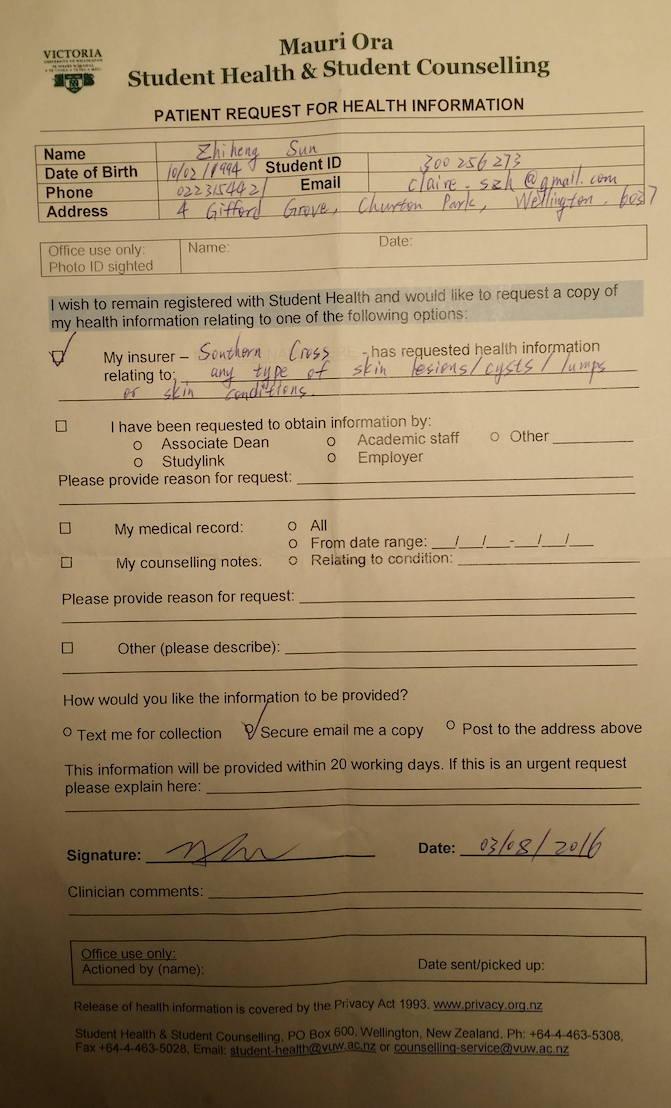 VICTORIA
Mauri Ora
Student Health & Student Counselling
PATIENT REQUEST FOR HEALTH INFORMATION
Name Zhiheng Sun
Date of Birth 10/02/1994 Student ID 300256273
Phone 0223154421 Email claire.szh@gmail.com
Address 4 Gifford Grove, Churton Park, Wellington. 6037
Office use only: Name: Date:
Photo ID sighted
I wish to remain registered with Student Health and would like to request a copy of
my health information relating to one of the following options:
My insurer – Southern Cross - has requested health information
relating to: any type of skin lesions/cysts/lumps
or skin conditions.
I have been requested to obtain information by:
Associate Dean Academic staff Other
Studylink Employer
Please provide reason for request:
My medical record: All
From date range: / / - / /
My counselling notes. Relating to condition:
Please provide reason for request:
Other (please describe):
How would you like the information to be provided?
Text me for collection Secure email me a copy Post to the address above
This information will be provided within 20 working days. If this is an urgent request
please explain here:
Signature: Date: 03/08/2016
Clinician comments:
Office use only:
Actioned by (name): Date sent/picked up:
Release of health information is covered by the Privacy Act 1993. www.privacy.org.nz
Student Health & Student Counselling, PO Box 600, Wellington, New Zealand. Ph: +64-4-463-5308,
Fax +64-4-463-5028, Email: student-health@vuw.ac.nz or counselling-service@vuw.ac.nz